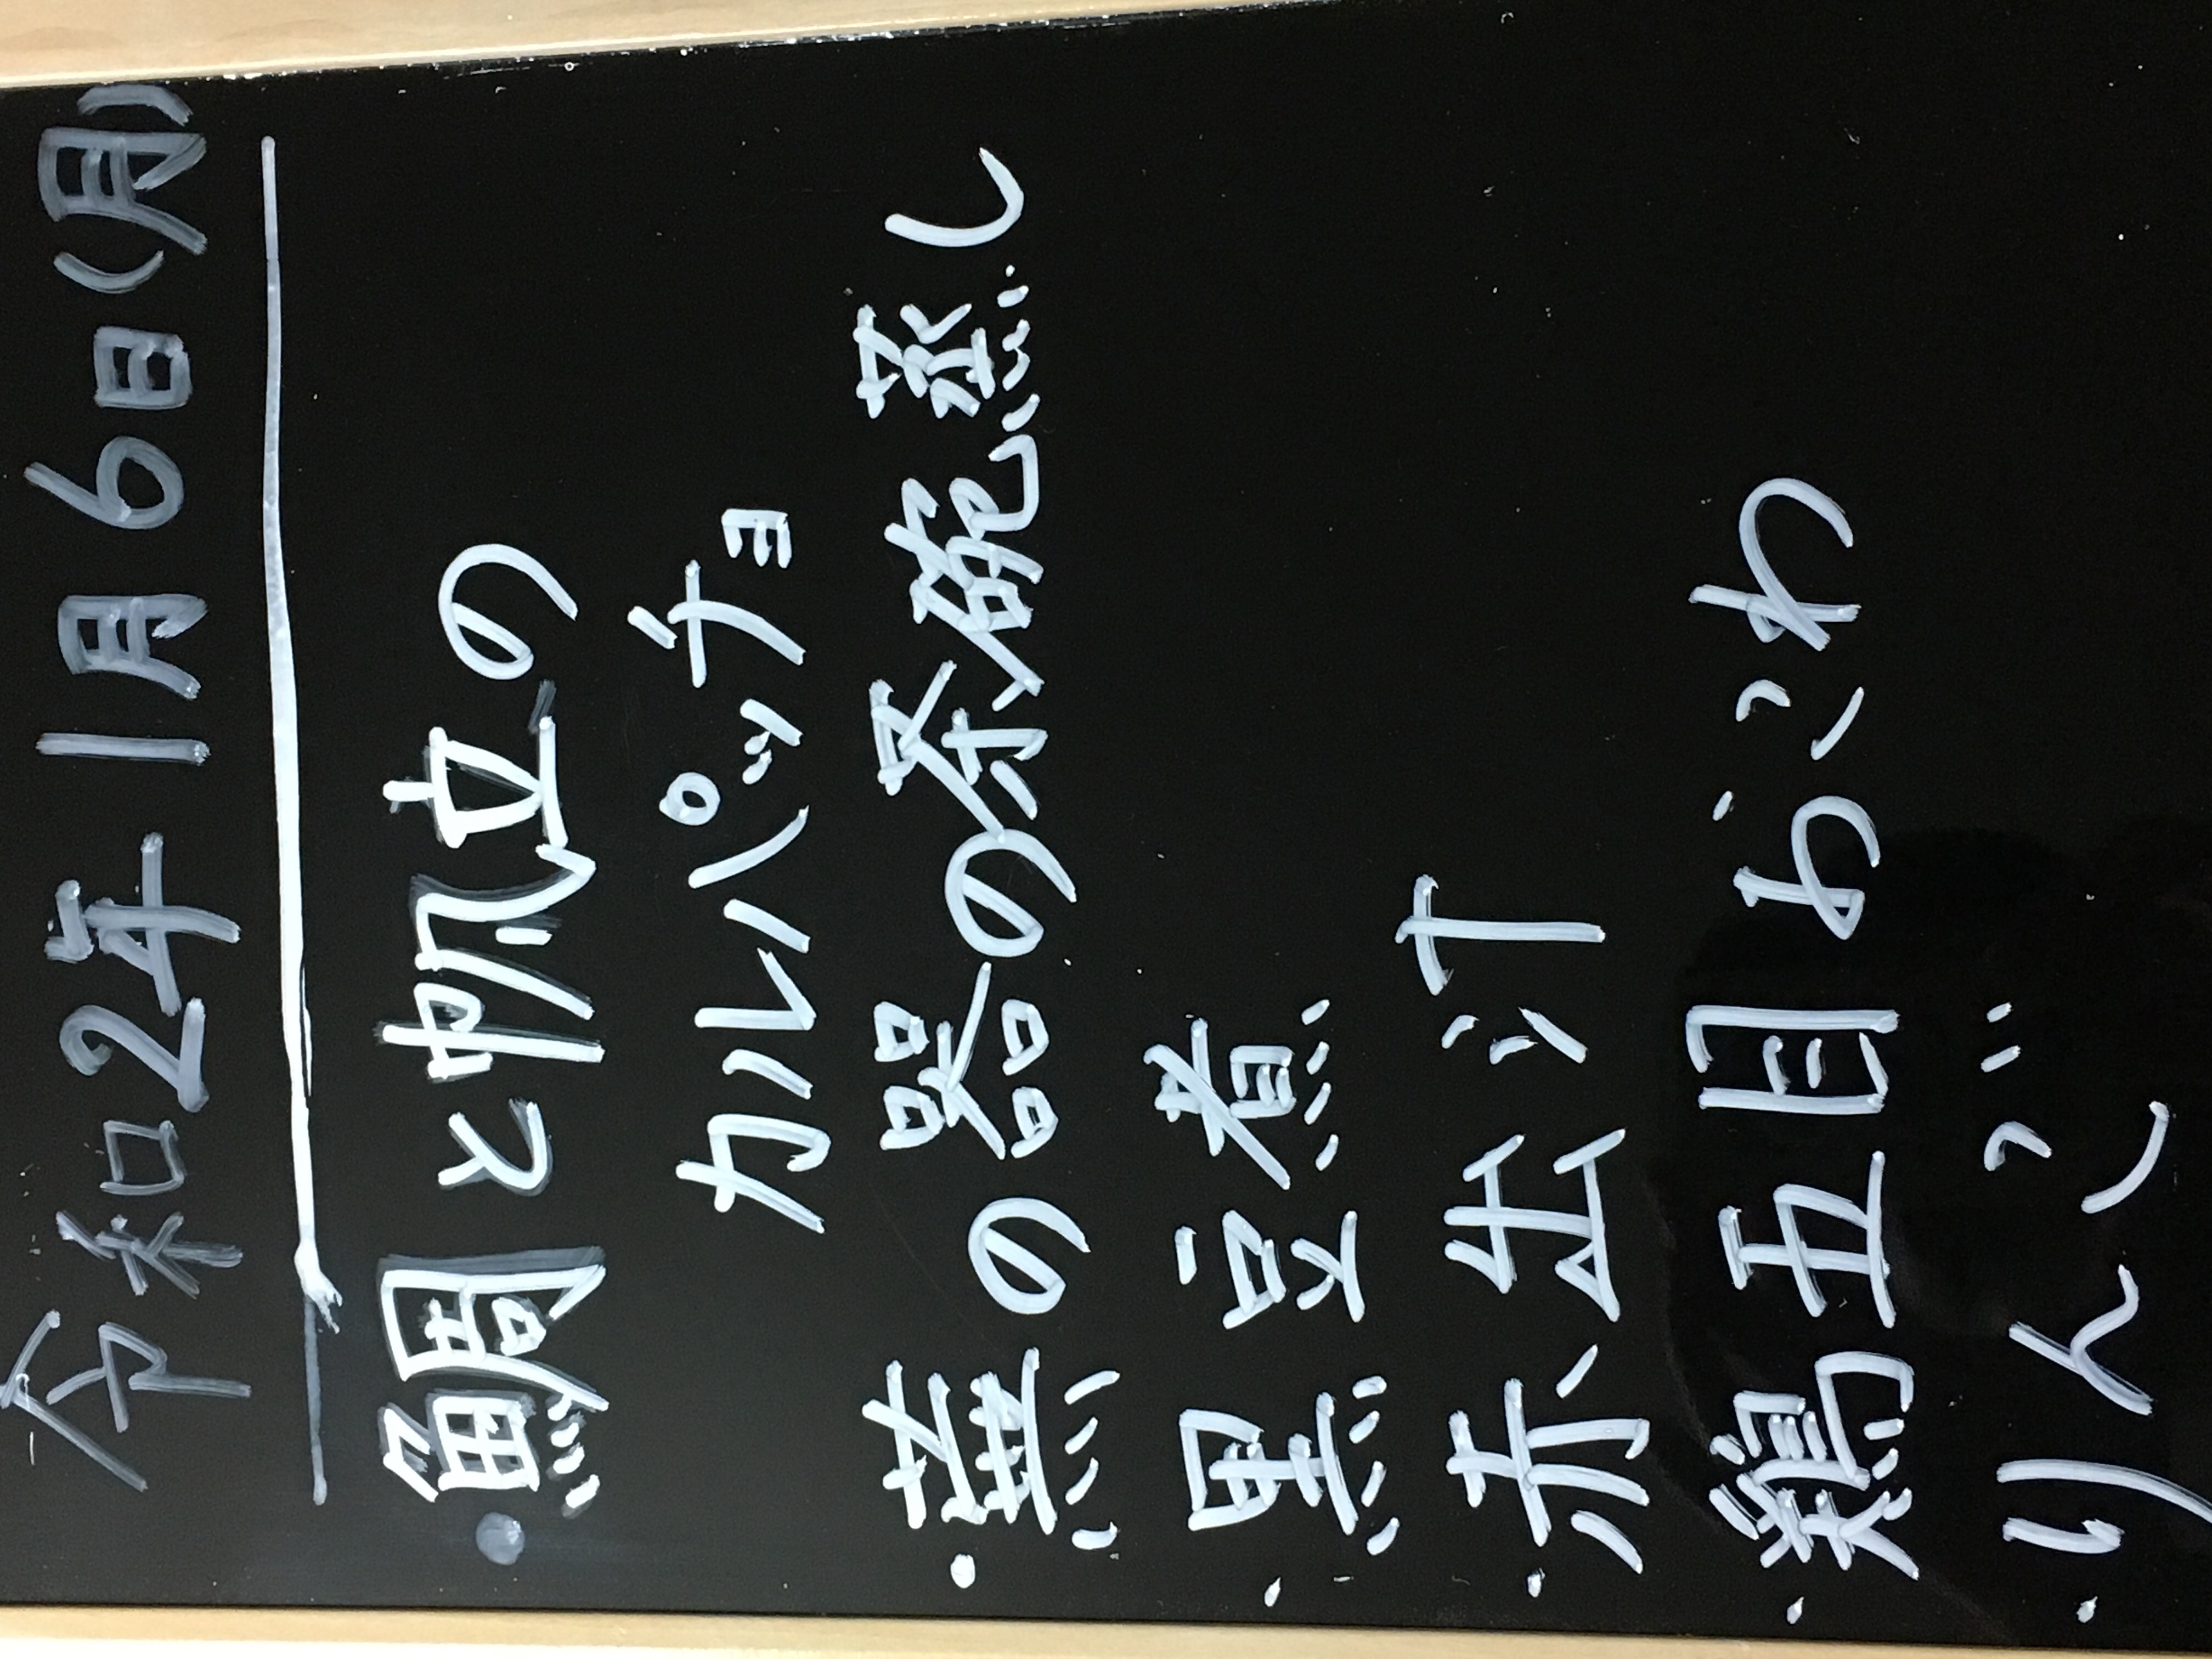 令和2年1月6日(月)
・鯛と帆立の
カルパッチョ
・蕪の器の茶碗蒸し
・黒豆煮
・赤出汁
・鶏五目おこわ
・りんご